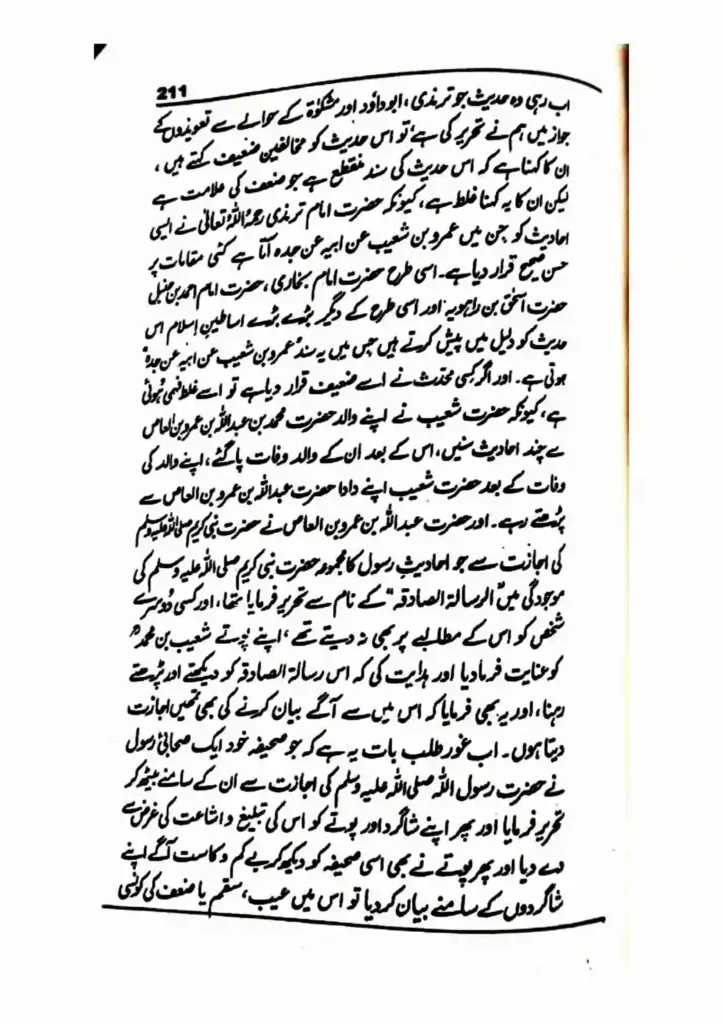 211
اب رہی وہ حدیث جو ترمذی، ابوداؤد اور مشکوٰۃ کے حوالے سے تعویذوں کے
جواز میں ہم نے تحریر کی ہے، تو اس حدیث کو مخالفین ضعیف کہتے ہیں،
ان کا کہنا ہے کہ اس حدیث کی سند منقطع ہے جو ضعف کی علامت ہے
لیکن ان کا یہ کہنا غلط ہے، کیونکہ حضرت امام ترمذی رحمۃ اللہ تعالیٰ نے ایسی
احادیث کو جن میں عمرو بن شعیب عن ابیہ عن جدہ آتا ہے کئی مقامات پر
حسن صحیح قرار دیا ہے۔ اسی طرح حضرت امام بخاری، حضرت امام احمد بن حنبل
حضرت اسحٰق بن راہویہ اور اسی طرح کے دیگر بڑے بڑے اساطینِ اسلام اس
حدیث کو دلیل میں پیش کرتے ہیں جس میں یہ سند عمرو بن شعیب عن ابیہ عن جدہ
ہوتی ہے۔ اور اگر کسی محدّث نے اسے ضعیف قرار دیا ہے تو اسے غلط فہمی ہوئی
ہے، کیونکہ حضرت شعیب نے اپنے والد حضرت محمد بن عبداللہ بن عمرو بن العاص
سے چند احادیث سنیں، اس کے بعد ان کے والد وفات پا گئے، اپنے والد کی
وفات کے بعد حضرت شعیب اپنے دادا حضرت عبداللہ بن عمرو بن العاص سے
پڑھتے رہے۔ اور حضرت عبداللہ بن عمرو بن العاص نے حضرت نبی کریم صلی اللہ علیہ وسلم
کی اجازت سے جو احادیثِ رسول کا مجموعہ حضرت نبی کریم صلی اللہ علیہ وسلم کی
موجودگی میں "الرسالۃ الصادقہ" کے نام سے تحریر فرمایا تھا، اور کسی دُوسرے
شخص کو اس کے مطالبے پر بھی نہ دیتے تھے، اپنے پوتے شعیب بن محمد
کو عنایت فرما دیا اور ہدایت کی کہ اس رسالۃ الصادقہ کو دیکھتے اور پڑھتے
رہنا، اور یہ بھی فرمایا کہ اس میں سے آگے بیان کرنے کی بھی تمھیں اجازت
دیتا ہوں۔ اب غور طلب بات یہ ہے کہ جو صحیفہ خود ایک صحابیٔ رسول
نے حضرت رسول اللہ صلی اللہ علیہ وسلم کی اجازت سے ان کے سامنے بیٹھ کر
تحریر فرمایا اور پھر اپنے شاگرد اور پوتے کو اس کی تبلیغ و اشاعت کی غرض سے
دے دیا اور پھر پوتے نے بھی اسی صحیفہ کو دیکھ کر بے کم و کاست آگے اپنے
شاگردوں کے سامنے بیان کر دیا تو اس میں عیب، سقم یا ضعف کی کونسی